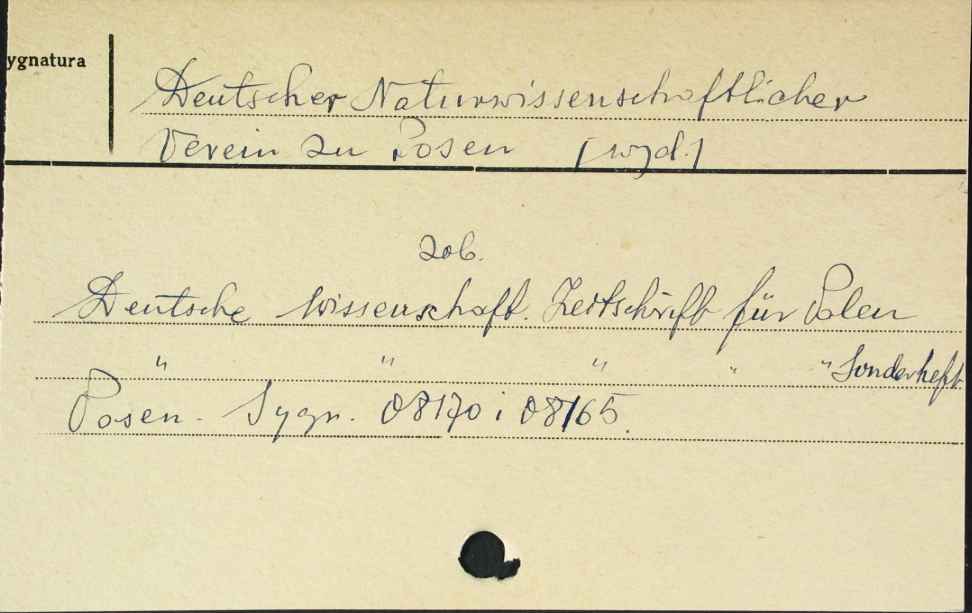 ygnatura
Deutscher Naturwissenschaftlicher
Verein zu Posen [wyd.]
zob.
Deutsche Wissensch. Zeitschrift für Polen
" " " " " Sonderheft
Posen. Sygn. 08170 i 08165.